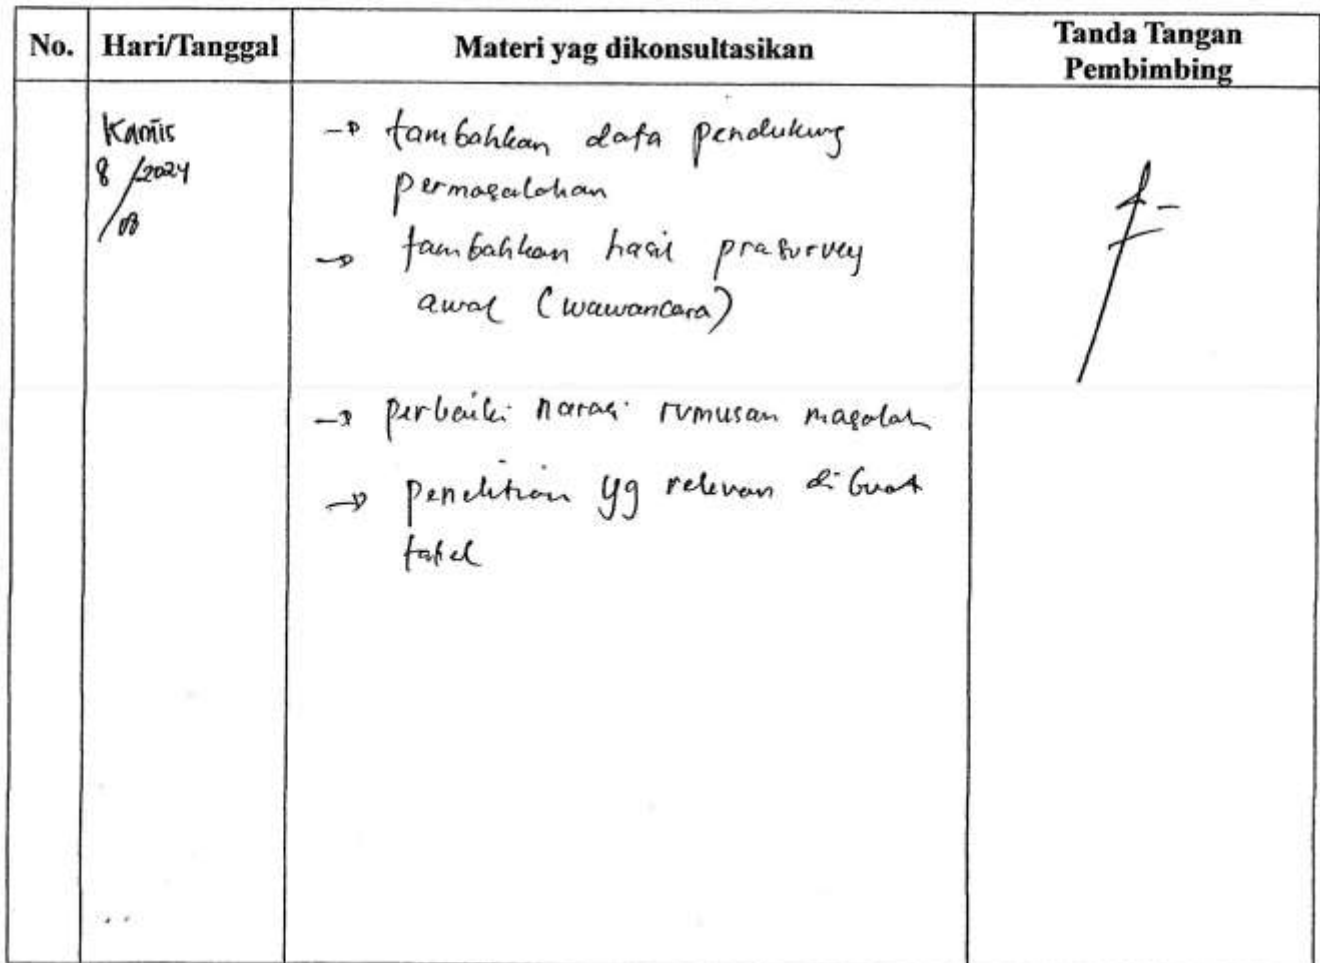 No. Hari/Tanggal Materi yag dikonsultasikan Tanda Tangan
Pembimbing
Kamis
8 /2024
/08
→ tambahkan data pendukung
permasalahan
→ tambahkan hasil prasurvey
awal (wawancara)
→ perbaiki narasi rumusan masalah
→ penelitian yg relevan di buat
tabel